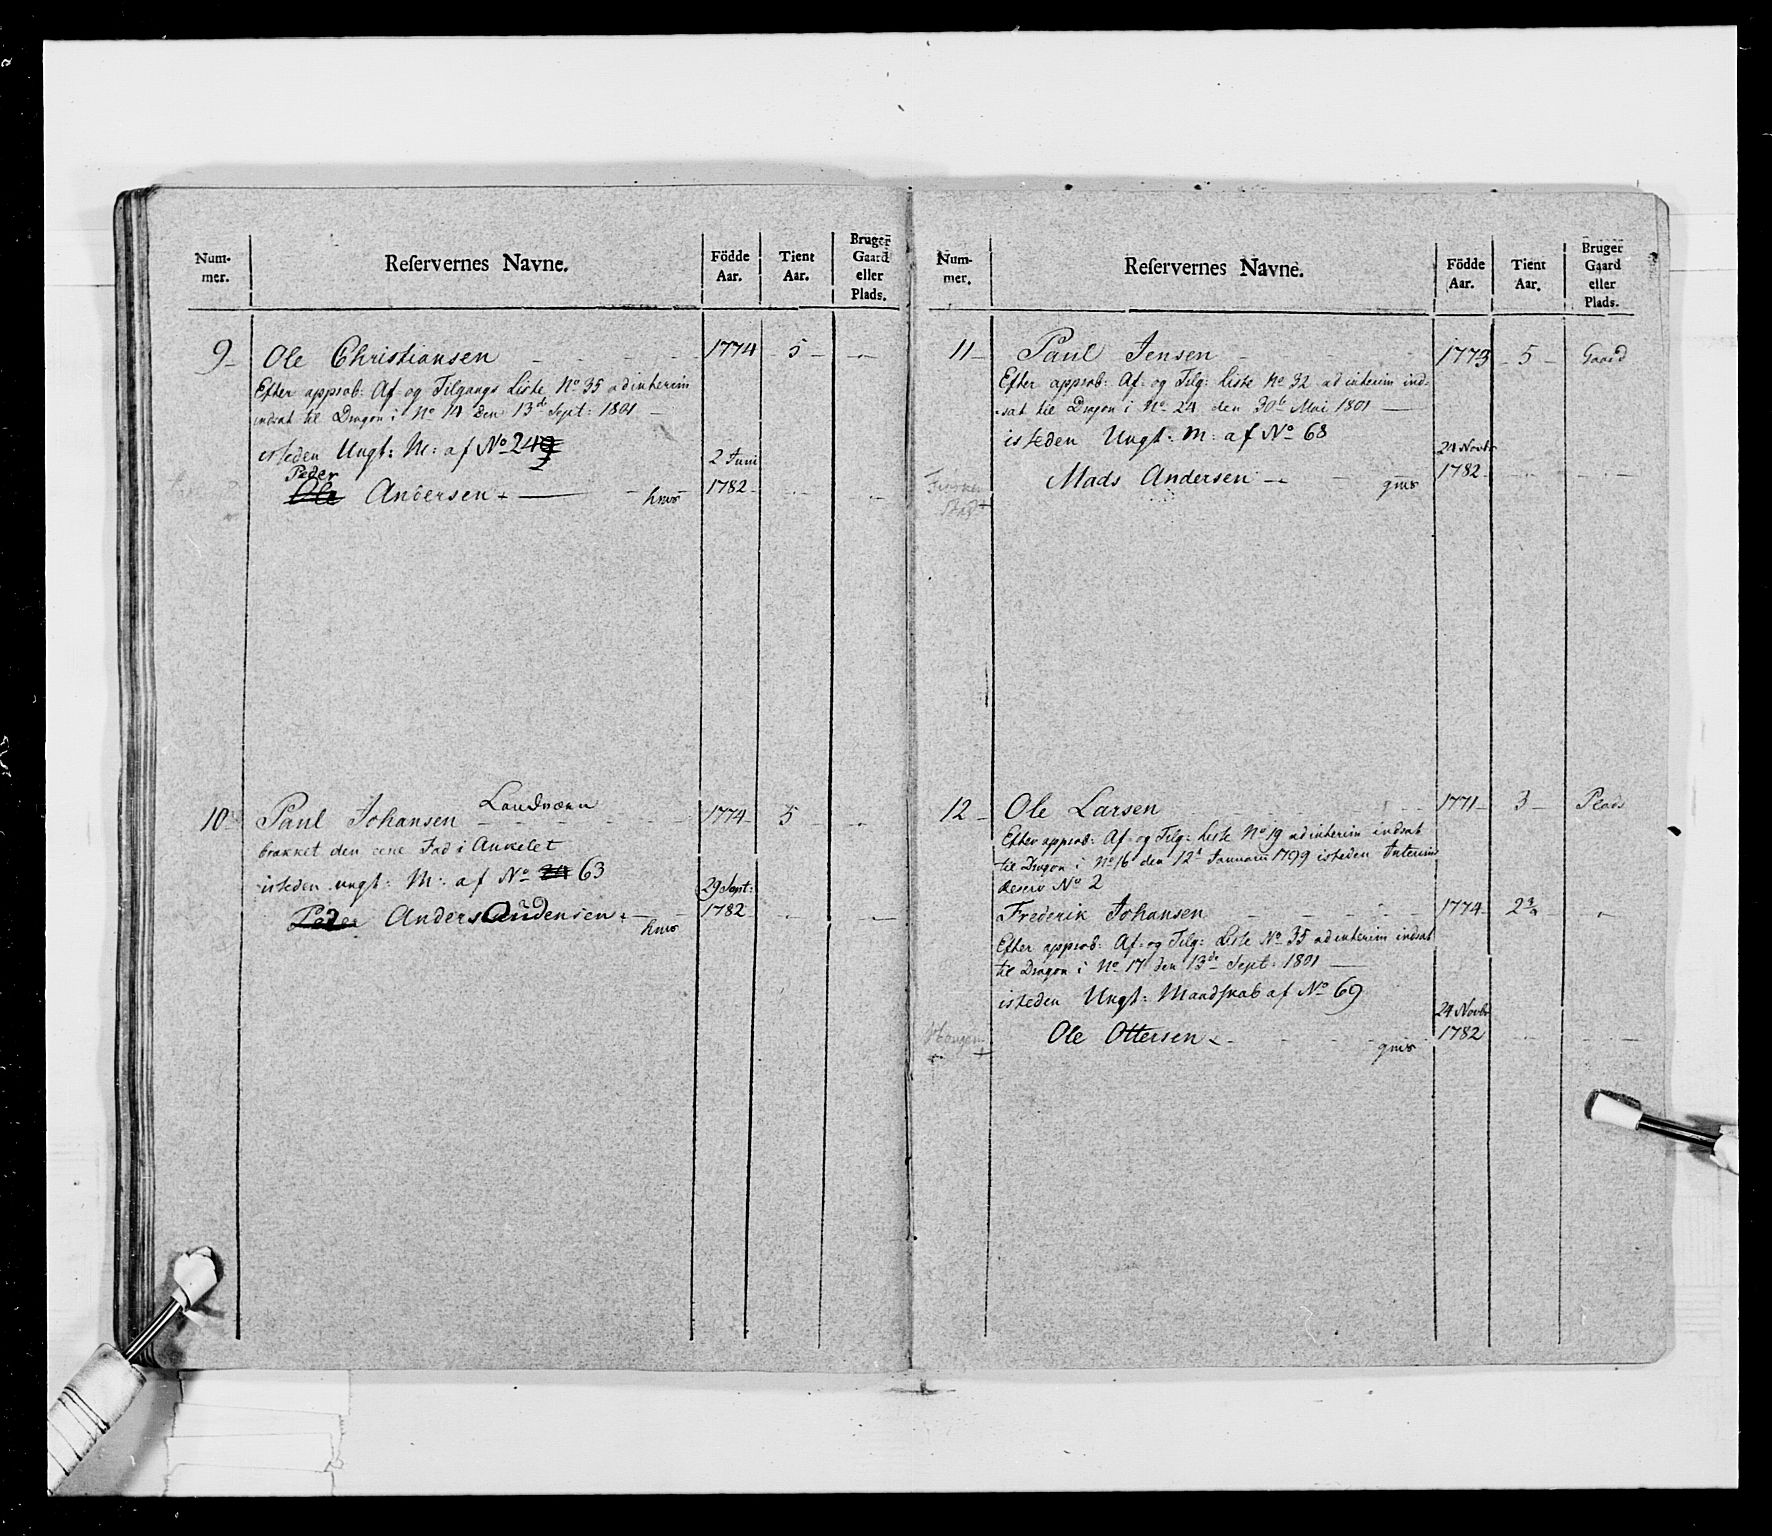 Num-
mer.
Reservernes Navne.
Födde
Aar.
Tient
Aar.
Bruger
Gaard
eller
Plads.
9 Ole Christiansen 1774 5
Efter approb: Af- og Tilgangs Liste No 35 ad interim
indsat til Dragon i No 14 den 13de Sept: 1801
isteden Ungt: M: af No 24
Peder 2 Juni
Ole Andersen 1782
10 Paul Johansen Landværn 1774 5
brækket den ene Fod i Ankelet
isteden ungt: M: af No 24 63
29 Sept:
Peder Anders Audensen 1782
Num-
mer.
Reservernes Navne.
Födde
Aar.
Tient
Aar.
Bruger
Gaard
eller
Plads.
11 Paul Jensen 1773 5 Gaard
Efter approb: Af- og Tilg: Liste No 32 ad interim ind-
sat til Dragon i No 24 den 30te Mai 1801
isteden Ungt: M: af No 68
24 Novbr
Mads Andersen 1782
12 Ole Larsen 1771 3 Plads
Efter approb: Af- og Tilg: Liste No 19 ad interim indsat
til Dragon i No 16 den 12t Januarii 1799 isteden Interims
Reserv No 2
Frederik Johansen 1774
Efter approb: Af- og Tilg: Liste No 35 ad interim indsat
til Dragon i No 17 den 13de Sept: 1801
isteden Ungt: Mandskab af No 69
24 Novbr
Haugen Ole Ottersen 1782